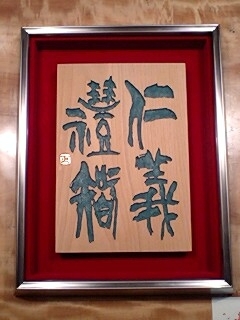 仁義
禮智